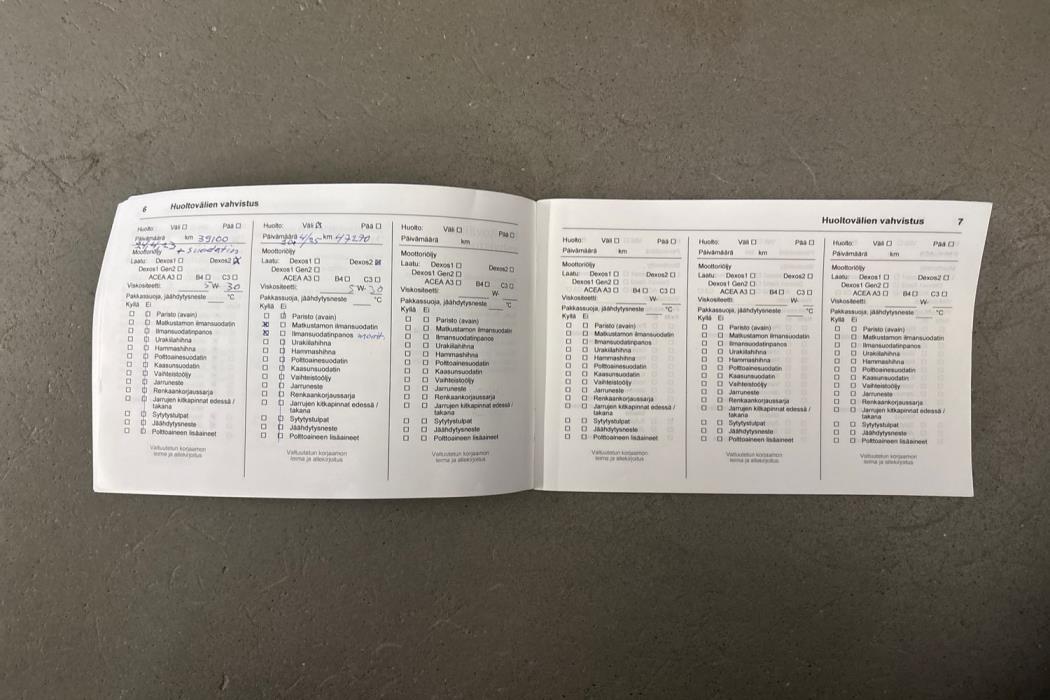 6 Huoltovälien vahvistus
Huolto: Väli ☐ Pää ☐
Päivämäärä km 39100
24/4/23 + suodatin
Moottoriöljy
Laatu: Dexos1 ☐ Dexos2 ☒
Dexos1 Gen2 ☐
ACEA A3 ☐ B4 ☐ C3 ☐
Viskositeetti: 5 W- 30
Pakkassuoja, jäähdytysneste °C
Kyllä Ei
☐ ☐ Paristo (avain)
☐ ☐ Matkustamon ilmansuodatin
☐ ☐ Ilmansuodatinpanos
☐ ☐ Urakiilahihna
☐ ☐ Hammashihna
☐ ☐ Polttoainesuodatin
☐ ☐ Kaasunsuodatin
☐ ☐ Vaihteistoöljy
☐ ☐ Jarruneste
☐ ☐ Renkaankorjaussarja
☐ ☐ Jarrujen kitkapinnat edessä /
takana
☐ ☐ Sytytystulpat
☐ ☐ Jäähdytysneste
☐ ☐ Polttoaineen lisäaineet
Valtuutetun korjaamon
leima ja allekirjoitus
Huolto: Väli ☒ Pää ☐
Päivämäärä 4/25 km 47290
Moottoriöljy
Laatu: Dexos1 ☐ Dexos2 ☒
Dexos1 Gen2 ☐
ACEA A3 ☐ B4 ☐ C3 ☐
Viskositeetti: 5 W- 30
Pakkassuoja, jäähdytysneste °C
Kyllä Ei
☐ ☐ Paristo (avain)
☒ ☐ Matkustamon ilmansuodatin
☒ ☐ Ilmansuodatinpanos
☐ ☐ Urakiilahihna
☐ ☐ Hammashihna
☐ ☐ Polttoainesuodatin
☐ ☐ Kaasunsuodatin
☐ ☐ Vaihteistoöljy
☐ ☐ Jarruneste
☐ ☐ Renkaankorjaussarja
☐ ☐ Jarrujen kitkapinnat edessä /
takana
☐ ☐ Sytytystulpat
☐ ☐ Jäähdytysneste
☐ ☐ Polttoaineen lisäaineet
Valtuutetun korjaamon
leima ja allekirjoitus
Huolto: Väli ☐ Pää ☐
Päivämäärä km
Moottoriöljy
Laatu: Dexos1 ☐ Dexos2 ☐
Dexos1 Gen2 ☐
ACEA A3 ☐ B4 ☐ C3 ☐
Viskositeetti: W-
Pakkassuoja, jäähdytysneste °C
Kyllä Ei
☐ ☐ Paristo (avain)
☐ ☐ Matkustamon ilmansuodatin
☐ ☐ Ilmansuodatinpanos
☐ ☐ Urakiilahihna
☐ ☐ Hammashihna
☐ ☐ Polttoainesuodatin
☐ ☐ Kaasunsuodatin
☐ ☐ Vaihteistoöljy
☐ ☐ Jarruneste
☐ ☐ Renkaankorjaussarja
☐ ☐ Jarrujen kitkapinnat edessä /
takana
☐ ☐ Sytytystulpat
☐ ☐ Jäähdytysneste
☐ ☐ Polttoaineen lisäaineet
Valtuutetun korjaamon
leima ja allekirjoitus
Huoltovälien vahvistus 7
Huolto: Väli ☐ Pää ☐
Päivämäärä km
Moottoriöljy
Laatu: Dexos1 ☐ Dexos2 ☐
Dexos1 Gen2 ☐
ACEA A3 ☐ B4 ☐ C3 ☐
Viskositeetti: W-
Pakkassuoja, jäähdytysneste °C
Kyllä Ei
☐ ☐ Paristo (avain)
☐ ☐ Matkustamon ilmansuodatin
☐ ☐ Ilmansuodatinpanos
☐ ☐ Urakiilahihna
☐ ☐ Hammashihna
☐ ☐ Polttoainesuodatin
☐ ☐ Kaasunsuodatin
☐ ☐ Vaihteistoöljy
☐ ☐ Jarruneste
☐ ☐ Renkaankorjaussarja
☐ ☐ Jarrujen kitkapinnat edessä /
takana
☐ ☐ Sytytystulpat
☐ ☐ Jäähdytysneste
☐ ☐ Polttoaineen lisäaineet
Valtuutetun korjaamon
leima ja allekirjoitus
Huolto: Väli ☐ Pää ☐
Päivämäärä km
Moottoriöljy
Laatu: Dexos1 ☐ Dexos2 ☐
Dexos1 Gen2 ☐
ACEA A3 ☐ B4 ☐ C3 ☐
Viskositeetti: W-
Pakkassuoja, jäähdytysneste °C
Kyllä Ei
☐ ☐ Paristo (avain)
☐ ☐ Matkustamon ilmansuodatin
☐ ☐ Ilmansuodatinpanos
☐ ☐ Urakiilahihna
☐ ☐ Hammashihna
☐ ☐ Polttoainesuodatin
☐ ☐ Kaasunsuodatin
☐ ☐ Vaihteistoöljy
☐ ☐ Jarruneste
☐ ☐ Renkaankorjaussarja
☐ ☐ Jarrujen kitkapinnat edessä /
takana
☐ ☐ Sytytystulpat
☐ ☐ Jäähdytysneste
☐ ☐ Polttoaineen lisäaineet
Valtuutetun korjaamon
leima ja allekirjoitus
Huolto: Väli ☐ Pää ☐
Päivämäärä km
Moottoriöljy
Laatu: Dexos1 ☐ Dexos2 ☐
Dexos1 Gen2 ☐
ACEA A3 ☐ B4 ☐ C3 ☐
Viskositeetti: W-
Pakkassuoja, jäähdytysneste °C
Kyllä Ei
☐ ☐ Paristo (avain)
☐ ☐ Matkustamon ilmansuodatin
☐ ☐ Ilmansuodatinpanos
☐ ☐ Urakiilahihna
☐ ☐ Hammashihna
☐ ☐ Polttoainesuodatin
☐ ☐ Kaasunsuodatin
☐ ☐ Vaihteistoöljy
☐ ☐ Jarruneste
☐ ☐ Renkaankorjaussarja
☐ ☐ Jarrujen kitkapinnat edessä /
takana
☐ ☐ Sytytystulpat
☐ ☐ Jäähdytysneste
☐ ☐ Polttoaineen lisäaineet
Valtuutetun korjaamon
leima ja allekirjoitus